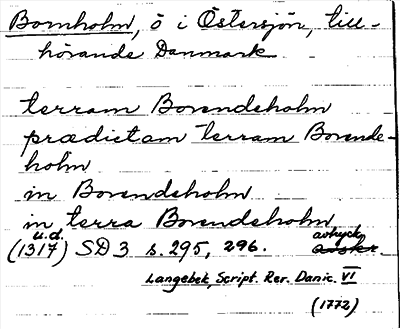 Bornholm, ö i Östersjön, till-
hörande Danmark
terram Borendeholm
prædictam terram Borende-
holm
in Borendeholm
in terra Borendeholm
u.d. avtryck
(1317) SD 3 s. 295, 296. avskr.
Langebek, Script. Rer. Danic. VI
(1772)